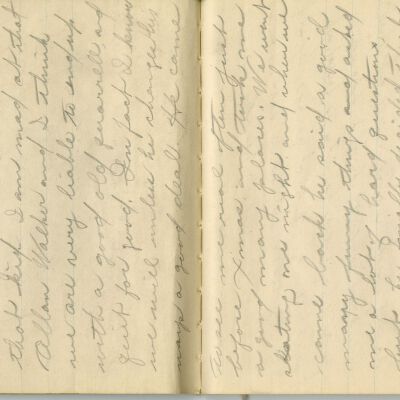 that kid. I am mad at that
Allan Walker and I think
we are very liable to end up
with a good old quarrel, and
quit for good. In fact I know
we will unless he change his
ways a good deal. He came
to see me real often just
before Xmas, and took me
a good many places. We went
skating one night and when we
came back he said a good
many funny things and asked
me a lot of hard questions
but he finally decided that I